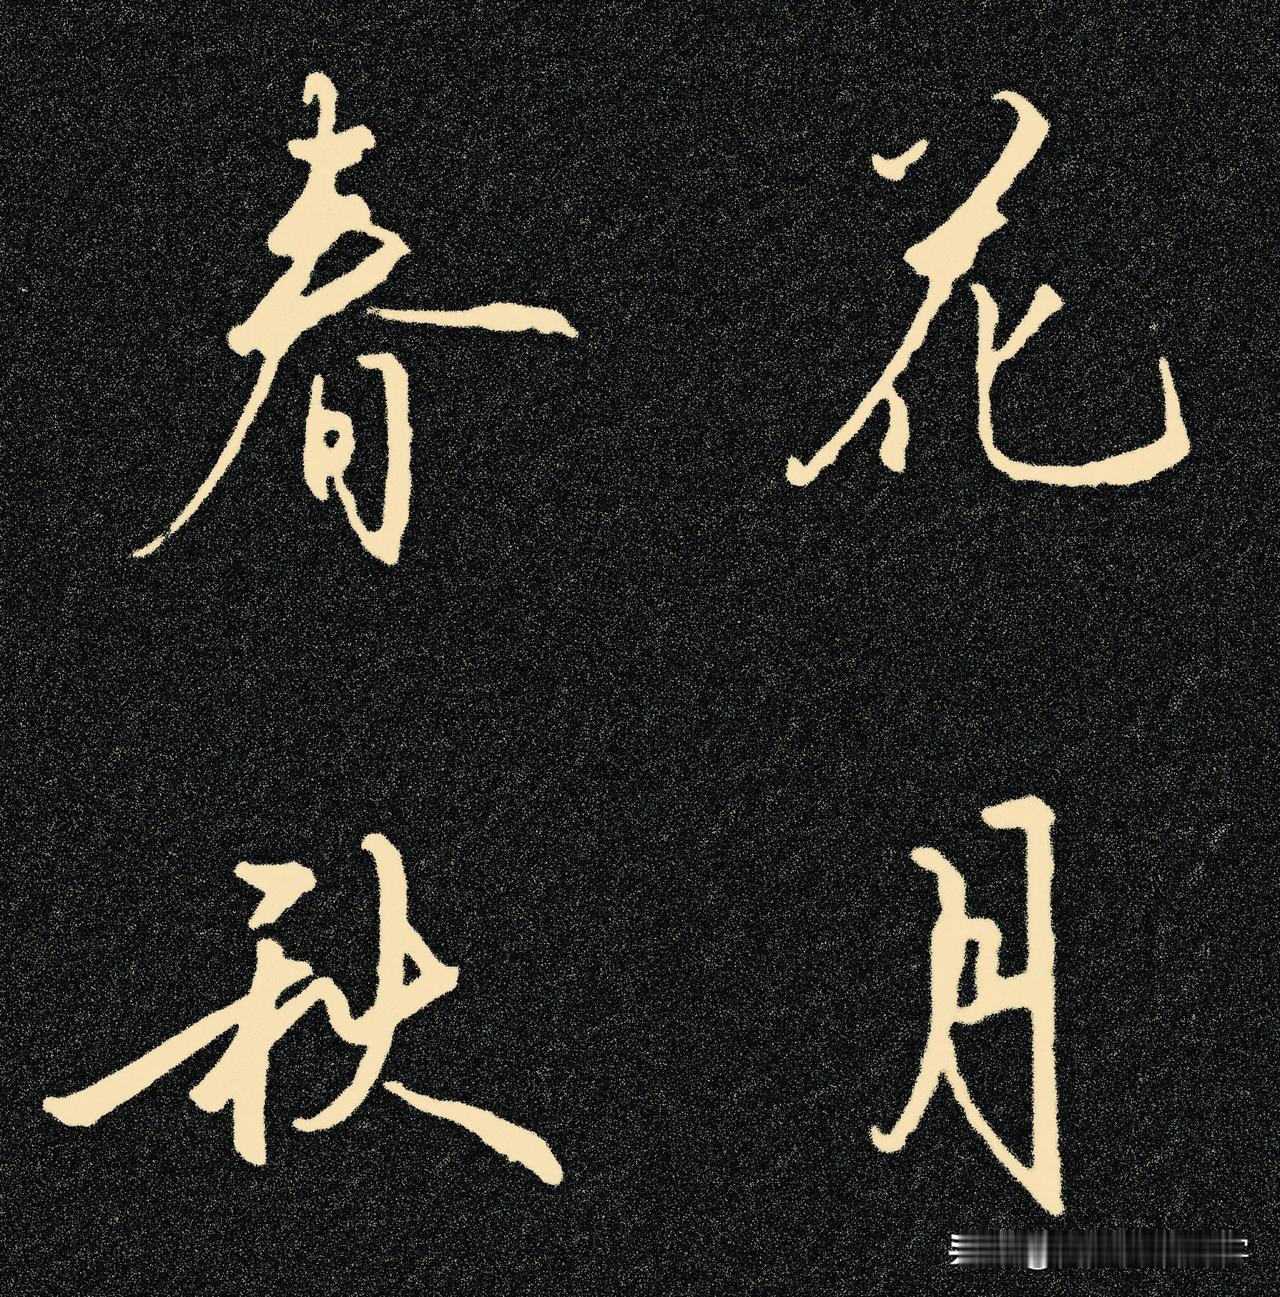 春花
秋月